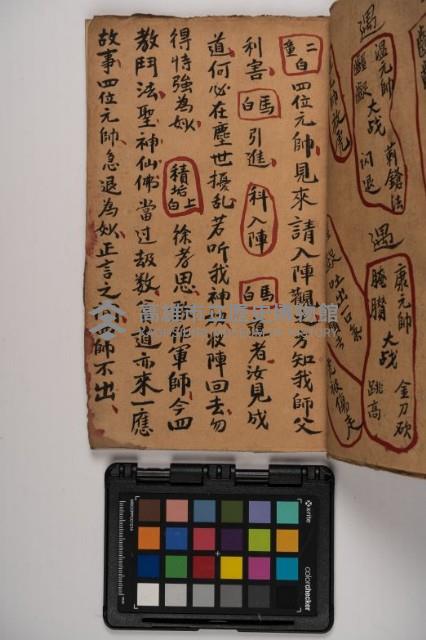 遇
温元帥
大战
前鎗法
闪退
遇
康元帥
醃臢
大战
金刀砍
跳高
二童白
四位元帥見來請入陣觀方知我師父
利害
馬白
引進
科入陣
馬白
道者汝見成
道何必在塵世擾乱若听我神
收陣回去勿
得恃強為妙
積垢上白
徐孝思
軍師今四
教鬥法聖神仙佛當过刼数
道亦來一應
故事四位元帥急退為妙正言之
師不出
高雄市立歷史博物館
x-rite
colorchecker